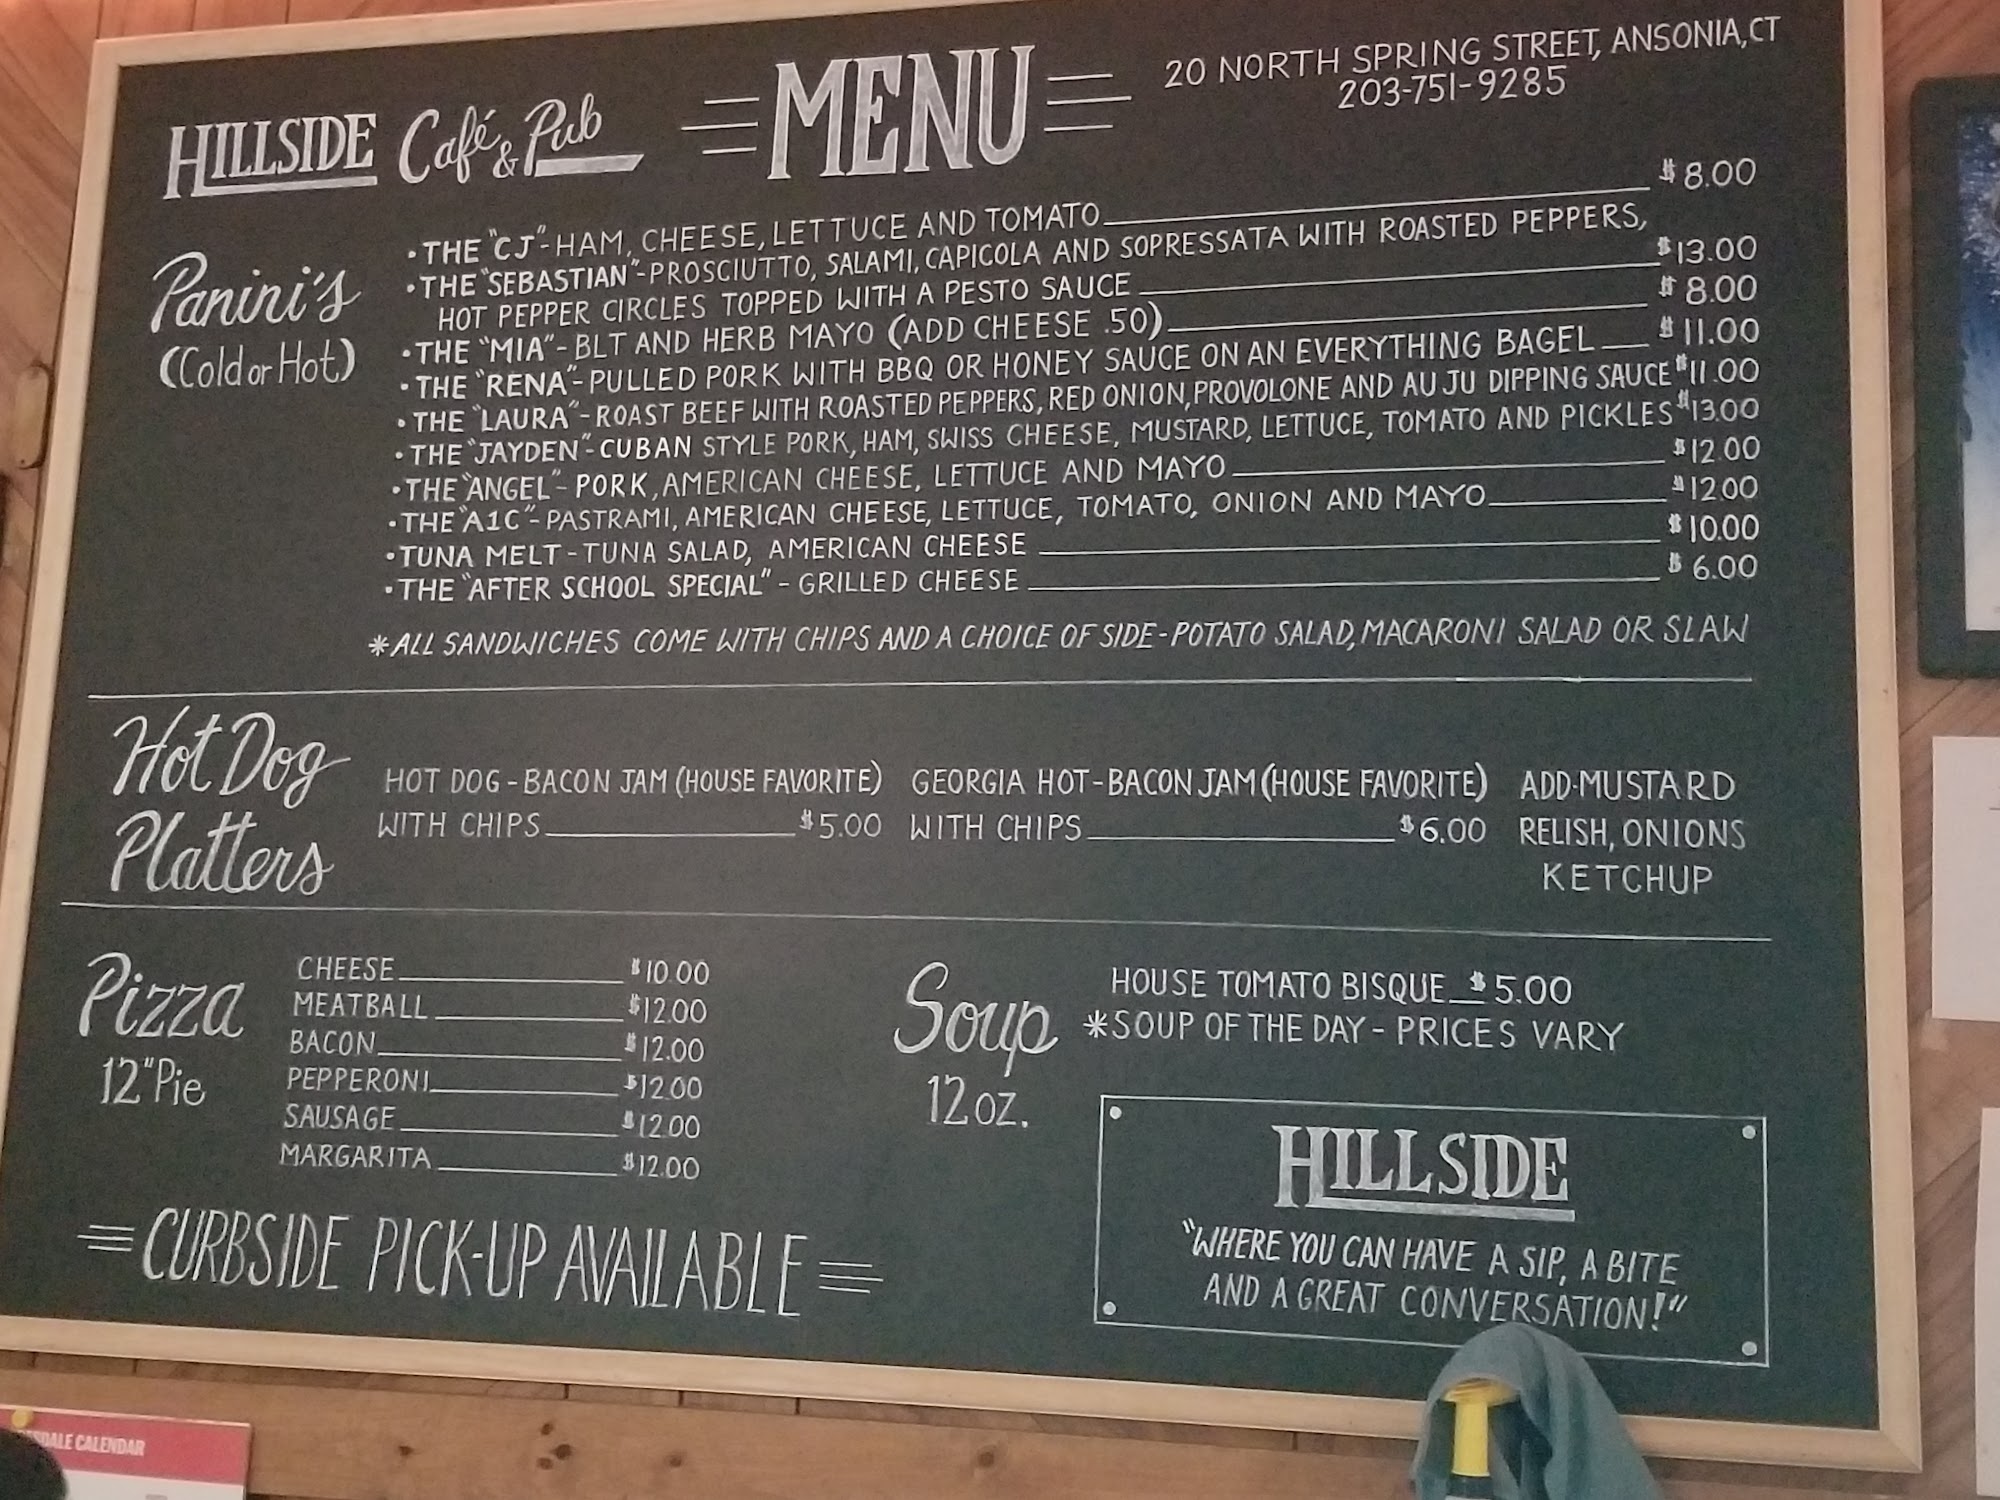 HILLSIDE Café & Pub
MENU
20 NORTH SPRING STREET, ANSONIA, CT
203-751-9285
Panini's
(Cold or Hot)
• THE "CJ" - HAM, CHEESE, LETTUCE AND TOMATO $8.00
• THE "SEBASTIAN" - PROSCIUTTO, SALAMI, CAPICOLA AND SOPRESSATA WITH ROASTED PEPPERS,
HOT PEPPER CIRCLES TOPPED WITH A PESTO SAUCE $13.00
• THE "MIA" - BLT AND HERB MAYO (ADD CHEESE .50) $8.00
• THE "RENA" - PULLED PORK WITH BBQ OR HONEY SAUCE ON AN EVERYTHING BAGEL $11.00
• THE "LAURA" - ROAST BEEF WITH ROASTED PEPPERS, RED ONION, PROVOLONE AND AU JU DIPPING SAUCE $11.00
• THE "JAYDEN" - CUBAN STYLE PORK, HAM, SWISS CHEESE, MUSTARD, LETTUCE, TOMATO AND PICKLES $13.00
• THE "ANGEL" - PORK, AMERICAN CHEESE, LETTUCE AND MAYO $12.00
• THE "A1C" - PASTRAMI, AMERICAN CHEESE, LETTUCE, TOMATO, ONION AND MAYO $12.00
• TUNA MELT - TUNA SALAD, AMERICAN CHEESE $10.00
• THE "AFTER SCHOOL SPECIAL" - GRILLED CHEESE $6.00
*ALL SANDWICHES COME WITH CHIPS AND A CHOICE OF SIDE-POTATO SALAD, MACARONI SALAD OR SLAW
Hot Dog
Platters
HOT DOG - BACON JAM (HOUSE FAVORITE)
WITH CHIPS $5.00
GEORGIA HOT - BACON JAM (HOUSE FAVORITE)
WITH CHIPS $6.00
ADD-MUSTARD
RELISH, ONIONS
KETCHUP
Pizza
12" Pie
CHEESE $10.00
MEATBALL $12.00
BACON $12.00
PEPPERONI $12.00
SAUSAGE $12.00
MARGARITA $12.00
Soup
12 oz.
HOUSE TOMATO BISQUE $5.00
*SOUP OF THE DAY - PRICES VARY
CURBSIDE PICK-UP AVAILABLE
HILLSIDE
"WHERE YOU CAN HAVE A SIP, A BITE
AND A GREAT CONVERSATION!"
CALENDAR